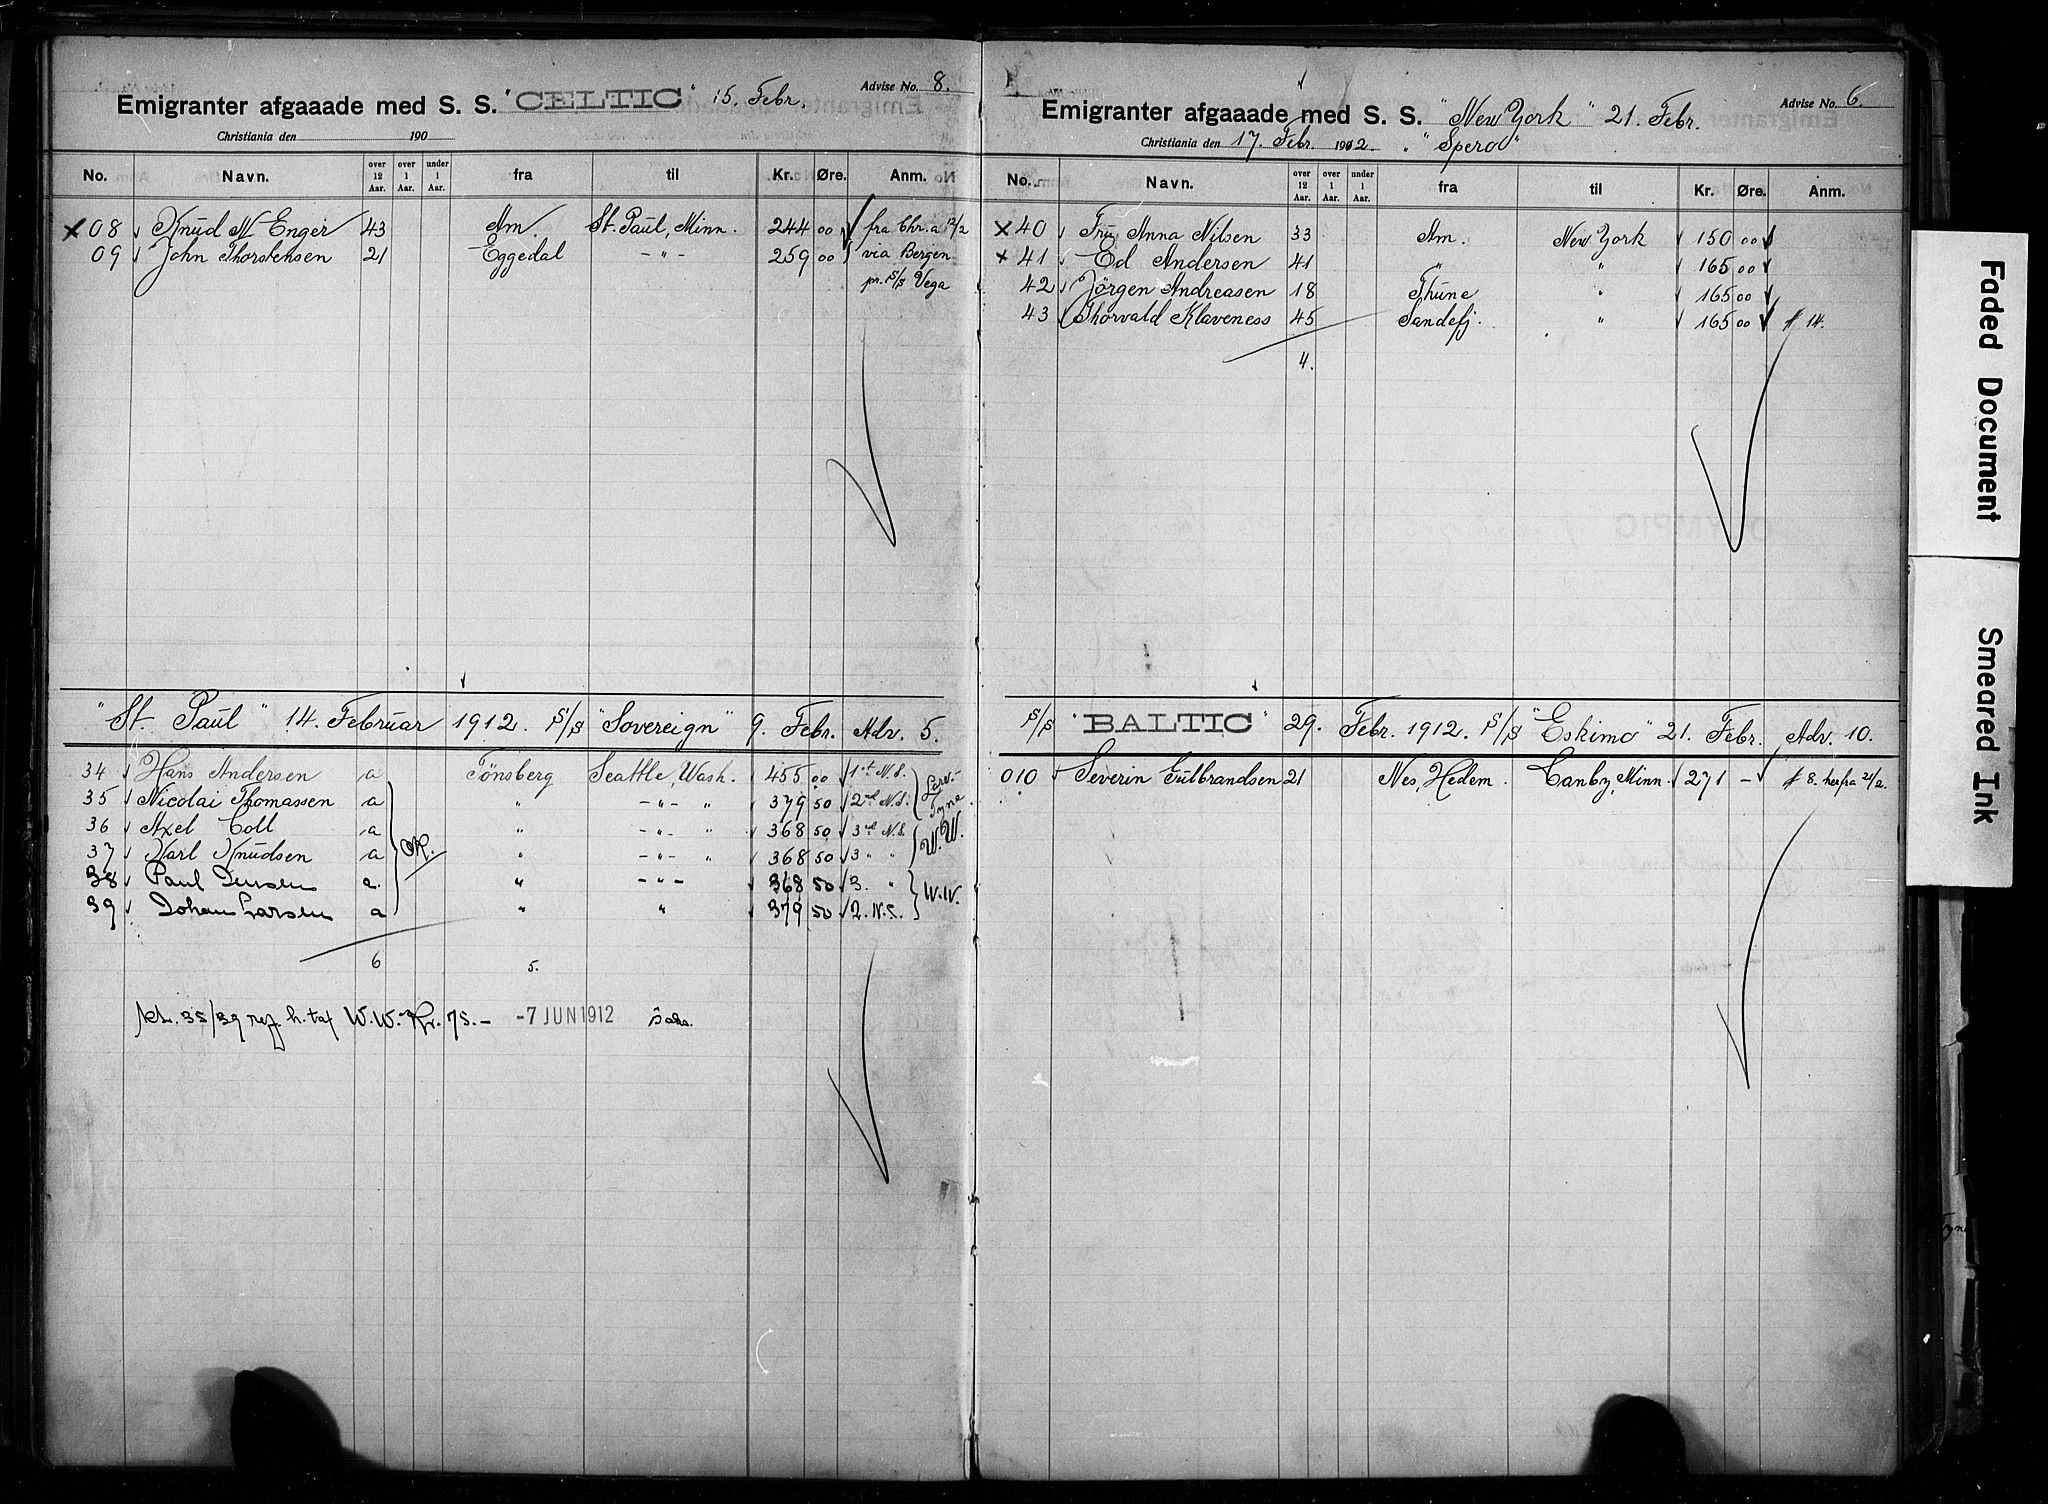 Emigranter afgaaade med S. S. "CELTIC" 15. Febr. Advise No. 8.
Christiania den 190
No. Navn. over 12 Aar. over 1 Aar. under 1 Aar. fra til Kr. Øre. Anm.
x 08 Knud N Enger 43 Am. St. Paul, Minn. 244 00 fra Chr.a 12/2
09 John Thorstensen 21 Eggedal - " - 259 00 via Bergen
pr. S/S Vega
"St. Paul" 14. Februar 1912. S/S "Sovereign" 9. Febr. Adv. 5.
34 Hans Andersen a Tönsberg Seattle, Wash. 455 00 1st N.S.
35 Nicolai Thomassen a " - " - " 379 50 2nd N.S.
36 Axel Coll a " - " - " 368 50 3rd N.S. W.W.
37 Karl Knudsen a OK. " - " - " 368 50 3 " "
38 Paul Jensen a. " - " - 368 50 3. " W.W.
39 Johan Larsen a " " 379 50 2. N.S.
6 5.
35/39 ref. h. taf W.W. Kr. 75.- -7 JUN 1912
Emigranter afgaaade med S. S. "New York" 21. Febr. Advise No. 6.
Christiania den 17. Febr. 1912. "Spero"
No. Navn. over 12 Aar. over 1 Aar. under 1 Aar. fra til Kr. Øre. Anm.
x 40 Fru Anna Nilsen 33 Am. New York 150 00
x 41 Ed Andersen 41 " " 165 00
42 Jörgen Andreasen 18 Thune " 165 00
43 Thorvald Klaveness 45 Sandefj. " 165 00 # 14.
4.
S/S "BALTIC" 29. Febr. 1912. S/S "Eskimo" 21. Febr. Adv. 10.
010 Severin Gulbrandsen 21 Nes, Hedem. Canby, Minn. 271 - # 8. herfra 21/2.
Faded Document
Smeared Ink